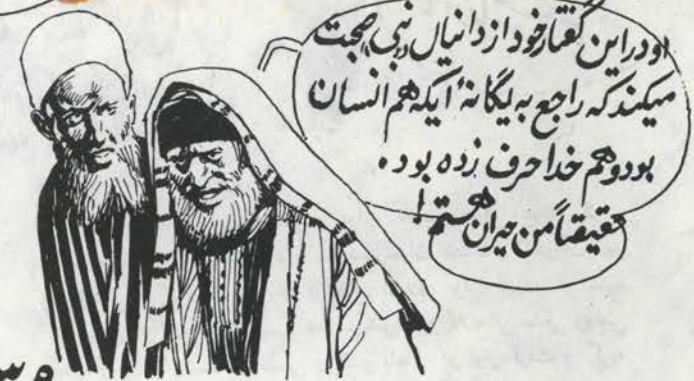 او در این گفتار خود از دانیال نبی صحبت
میکند که راجع به یگانهٔ ایکه هم انسان
بود و هم خدا حرف زده بود.
حقیقتاً من حیران هستم!